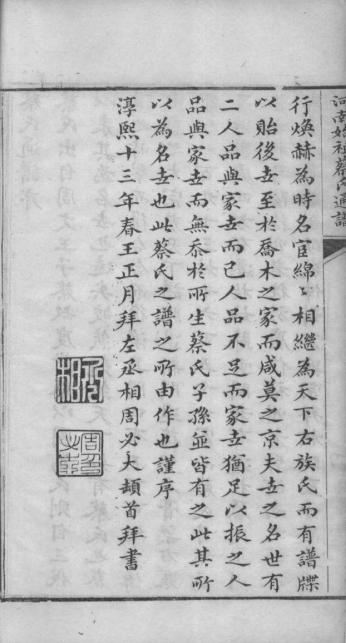 河南始祖蔡氏通譜
行煥赫為時名宦綿〻相繼為天下右族氏而有譜牒
以貽後世至於喬木之家而咸莫之京夫世之名世有
二人品與家世而已人品不足而家世猶足以振之人
品與家世而無忝於所生蔡氏子孫並皆有之此其所
以為名世也此蔡氏之譜之所由作也謹序
淳熙十三年春王正月拜左丞相周必大頓首拜書